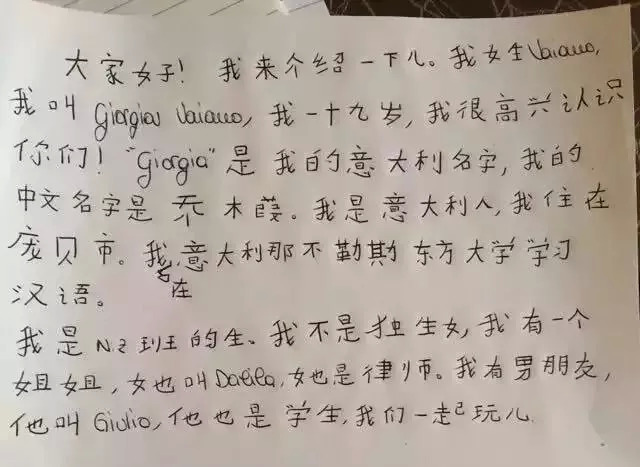 大家好！我来介绍一下儿。我姓Vaiano,
我叫Giorgia Vaiano, 我一十九岁, 我很高兴认识
你们！"Giorgia"是我的意大利名字, 我的
中文名字是乔木葭。我是意大利人, 我住在
庞贝市。我在意大利那不勒斯东方大学学习
汉语。
我是N.2班的生。我不是独生女, 我有一个
姐姐, 她叫Dalila, 她是律师。我有男朋友,
他叫Giulio, 他也是学生, 我们一起玩儿.